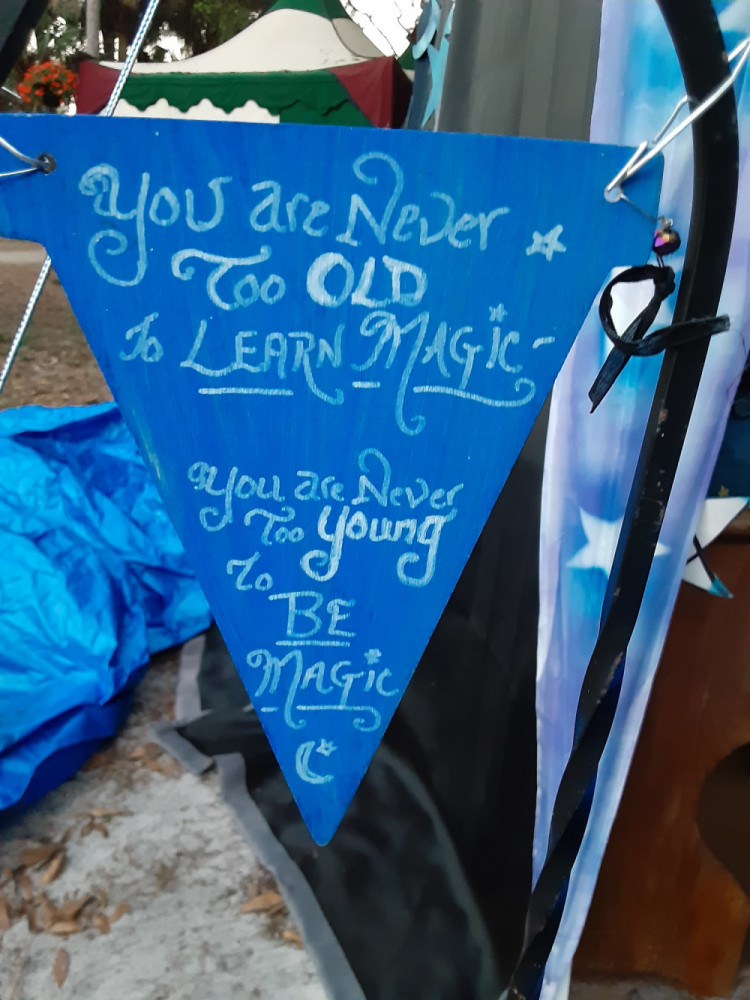 You are Never
Too OLD
To LEARN MAGIC-
You are Never
Too Young
To
BE
MAGIC